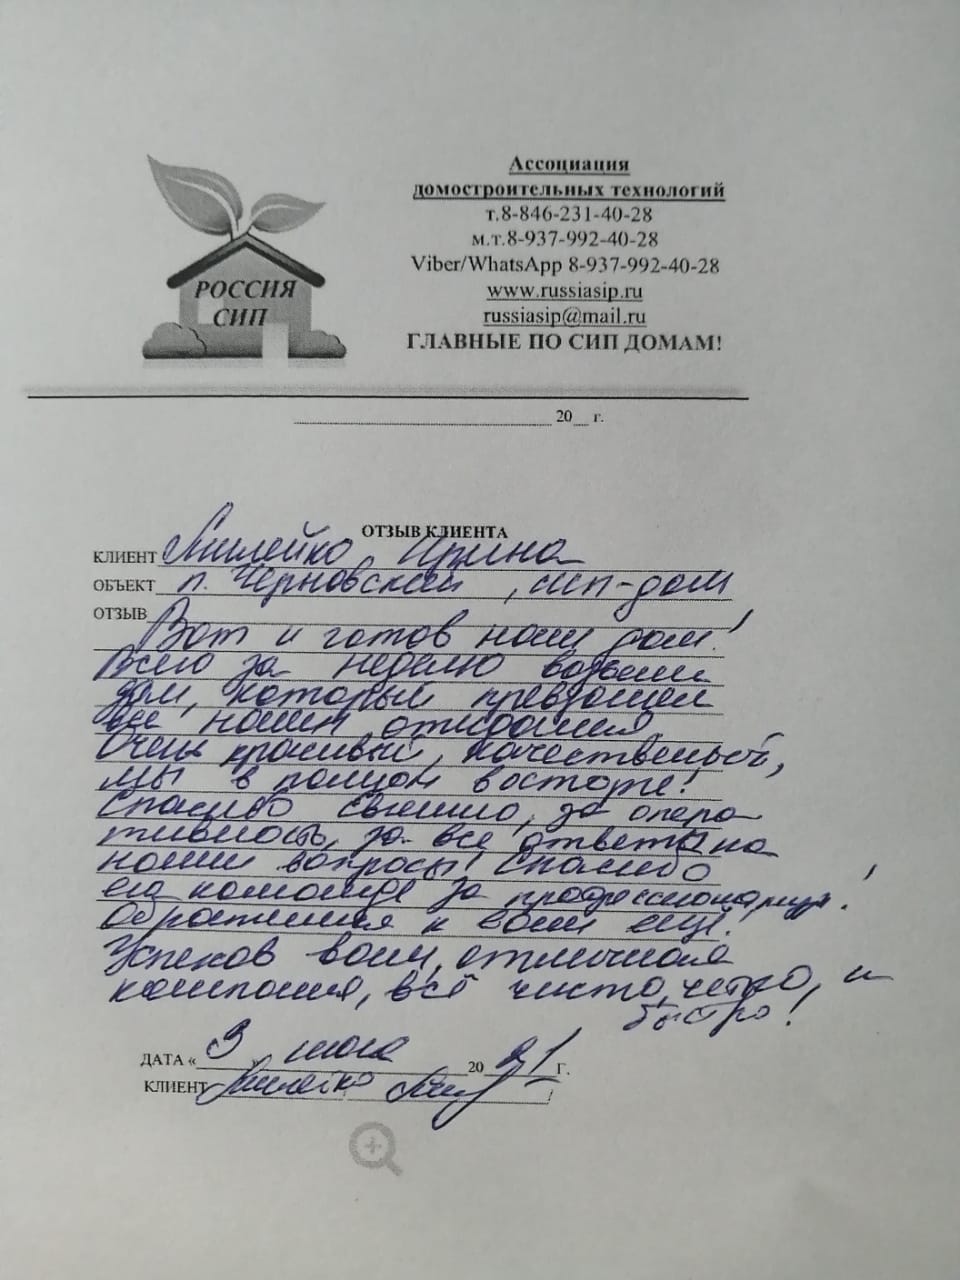 РОССИЯ
СИП
Ассоциация
домостроительных технологий
т.8-846-231-40-28
м.т.8-937-992-40-28
Viber/WhatsApp 8-937-992-40-28
www.russiasip.ru
russiasip@mail.ru
ГЛАВНЫЕ ПО СИП ДОМАМ!
20__ г.
ОТЗЫВ КЛИЕНТА
КЛИЕНТ Милейко Ирина
ОБЪЕКТ п. Черновский, сип-дом
ОТЗЫВ
Вот и готов наш дом!
Всего за неделю возвели
дом, который превзошел
все наши ожидания.
Очень красивый, качественный,
мы в полном восторге!
Спасибо за опера-
тивность, за все ответы на
наши вопросы! Спасибо
его команде за профессионализм!
Обратимся к вам ещё!
Успехов вам, отличная
компания, всё чисто, четко, и
быстро!
ДАТА « 9 » 20 21 г.
КЛИЕНТ Милейко